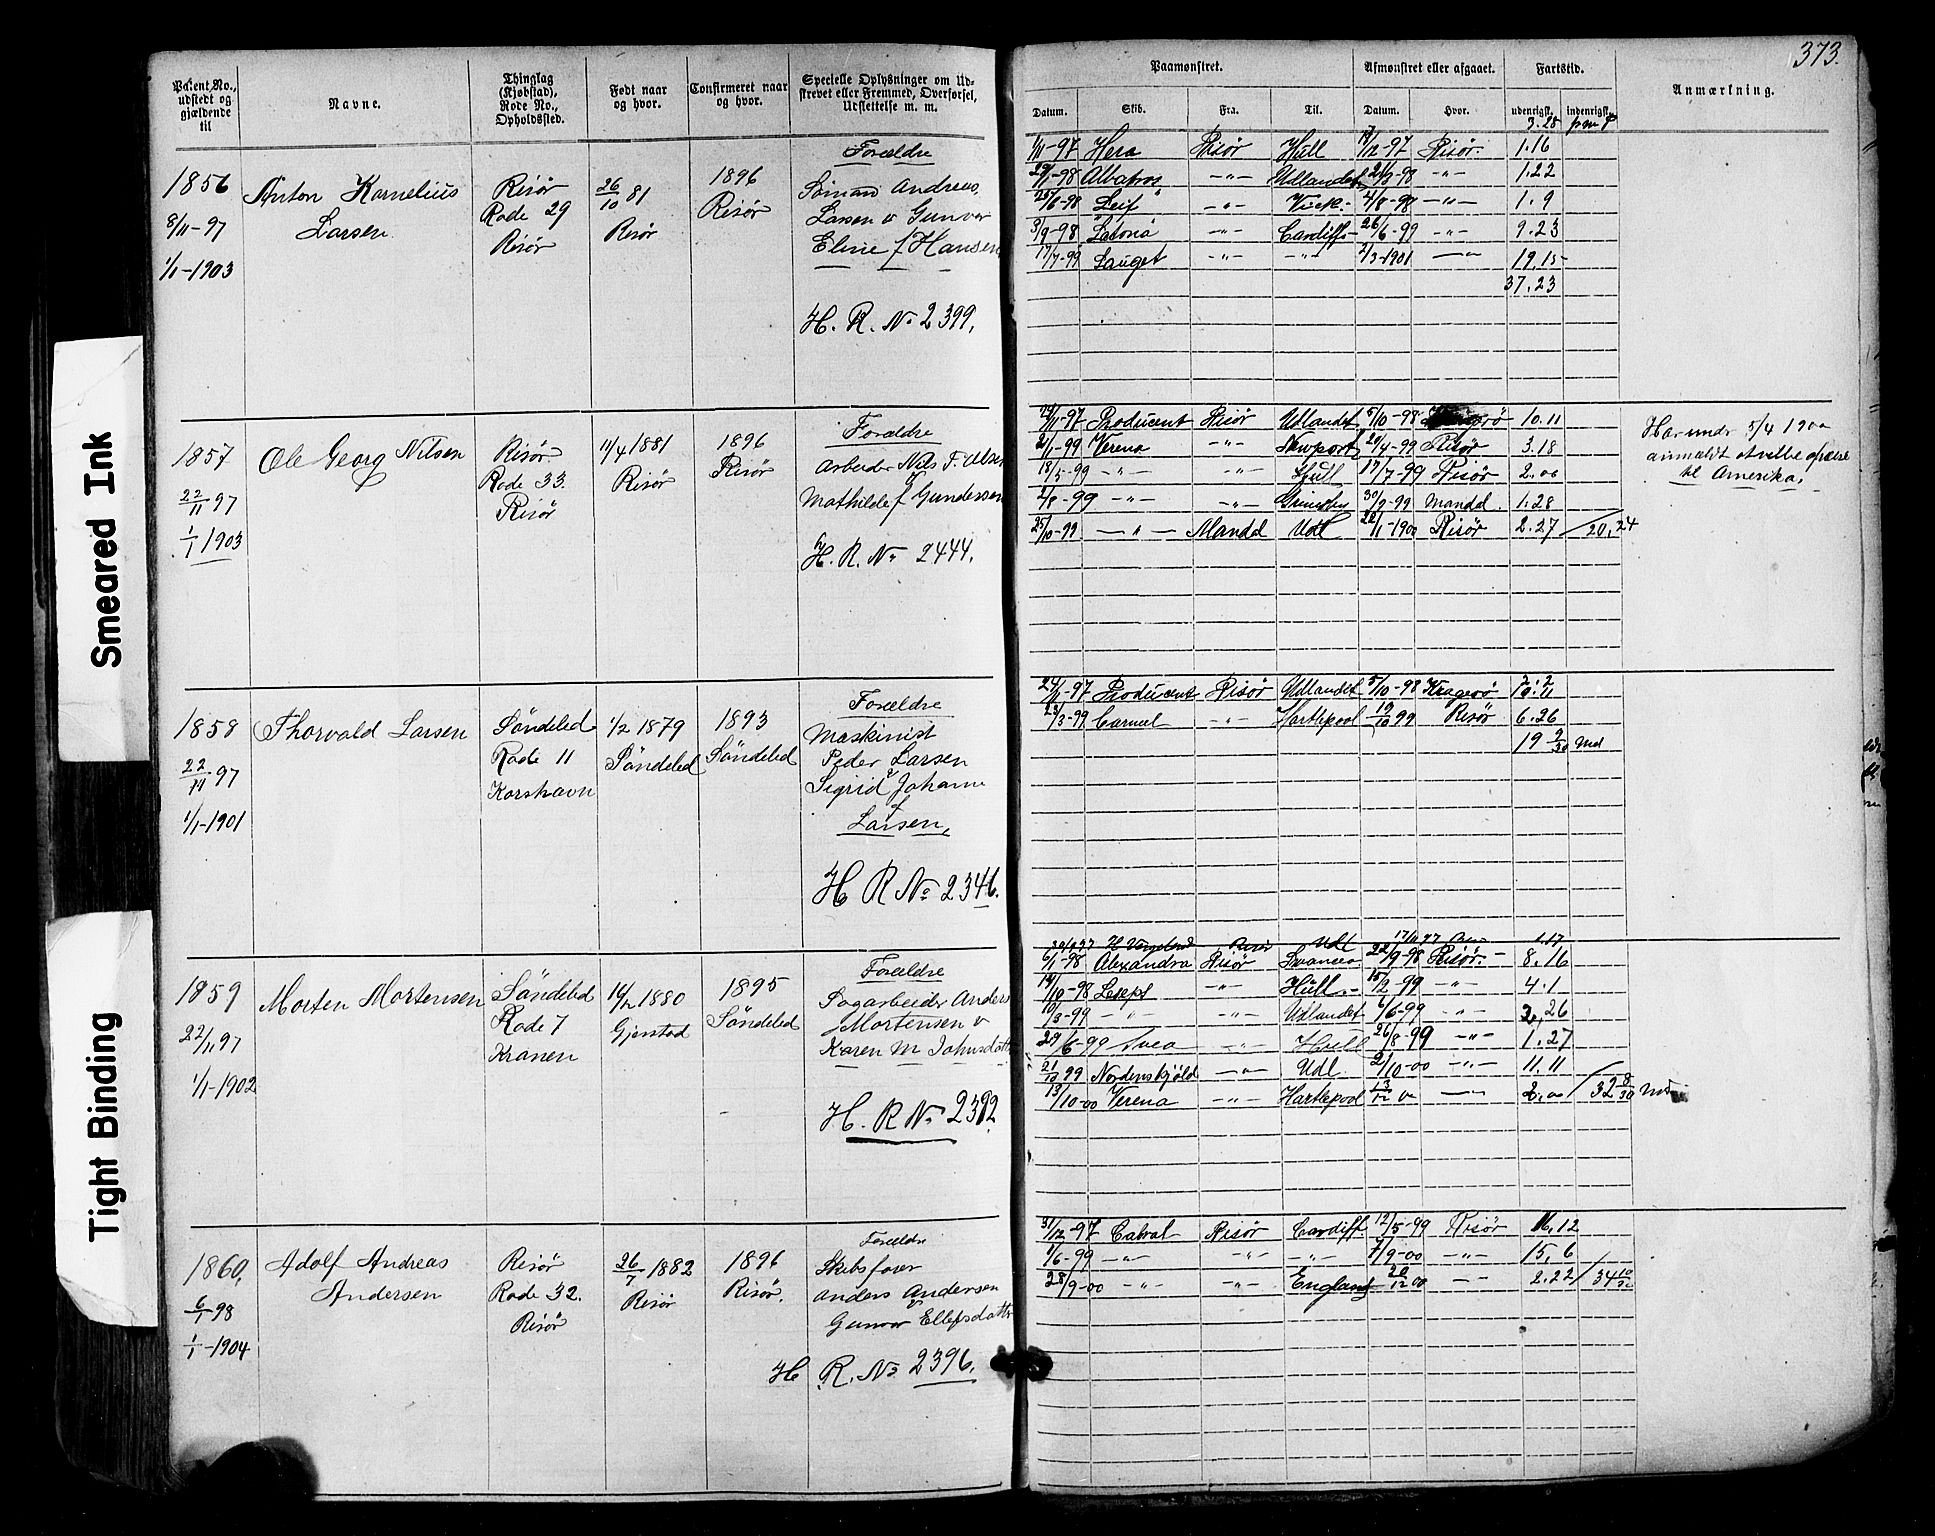 373.
Patent No., udstedt og gjældende til
Navne.
Thinglag (Kjøbstad), Rode No., Opholdssted.
Født naar og hvor.
Confirmeret naar og hvor.
Specielle Oplysninger om Udskrevet eller Fremmed, Overførsel, Udslettelse m. m.
Paamønstret.
Afmønstret eller afgaaet.
Fartstid.
Anmærkning.
Datum. Skib. Fra. Til. Datum. Hvor. udenrigsk. indenrigsk.
1856
8/11-97
1/1-1903
Anton Kornelius
Larsen
Risør
Rode 29
Risør
26/10 81
Risør
1896
Risør
Forældre
Sömand Andreas
Larsen o Gunvor
Eline f Hansen
H. R. No 2399.
3.28
1/11-97 Hera Risør Hull 17/12-97 Risør. 1.16
29/1-98 Albatros -"- Udlandet 21/3-98 -"- 1.22
25/6-98 Leif -"- Vick. 4/8-98 -"- 1.9
3/9-98 Latona -"- Cardiff 26/6-99 -"- 9.23
17/7-99 Sauget -"- -"- 2/3-1901 -"- 19.15
37.23
1857
22/11 97
1/1 1903
Ole Georg Nilsen
Risør.
Rode 33.
Risør
11/4 1881
Risør
1896
Risør
Forældre
Arbeider Nils F. Olsen
Mathilde f Gundersen
H. R. No 2444.
24/11-97 Producent Risør Udlandet 5/10-98 10.11
2/1-99 Verena -"- Newport 20/4-99 Risør 3.18
18/5-99 -"- -"- Hull 17/7-99 Risør 2.00
2/8-99 -"- -"- Grimsby 30/9-99 Mandal. 1.28
25/10-99 -"- Mandal Udl 22/1-1900 Risør 2.27 / 20.24
Har undr 5/4 1900
anmeldt
til Amerika.
1858
22/11 97
1/1-1901
Thorvald Larsen
Söndeled
Rode 11
Korshavn
1/2 1879
Söndeled
1893
Söndeled
Forældre
Maskinist
Peder Larsen
Sigrid Johanne
Larsen,
H R No 2346.
24/11-97 Producent Risør Udlandet 5/10-98 Kragerö
23/3-99 Carmel -"- Hartlepool 19/10 99 Risør 6.26
19 9/30 Md
1859
22/11 97
1/1-1902
Morten Mortensen
Söndeled
Rode 7
Kranen
14/12 1880
Gjerstad
1895
Söndeled
Forældre
Sagarbeider Anders
Mortensen o
Karen M Johnsdatter
H. R No 2392.
Risør Udl 17/11 97 1.17
6/1-98 Alexandra Risør Swansea 22/9-98 Risør. 8.16
14/10-98 Leseps -"- Hull. 15/2-99 -"- 4.1
10/3-99 -"- -"- Udlandet 6/6-99 -"- 2.26
29/6-99 Svea -"- Hull 26/8-99 -"- 1.27
21/10 99 Nordenskjöld -"- Udl. 2/10-00 -"- 11.11
13/10-00 Verena -"- Hartlepool 13/12 00 -"- 2.00 / 32 8/30 Md
1860,
6/1-98
1/1-1904
Adolf Andreas
Andersen
Risør
Rode 32.
Risør
26/7 1882
Risør
1896
Risør.
Forældre
Skibsfører
Anders Andersen
Gunvor Ellefsdatter
H R. No 2396.
31/12-97 Cabral Risør Cardiff. 12/5-99 Risør 16.12
1/6-99 -"- -"- -"- 7/9-00 -"- 15.6
28/9-00 -"- -"- England 20/12 00 -"- 2.22 / 34 10/30
Smeared Ink
Tight Binding